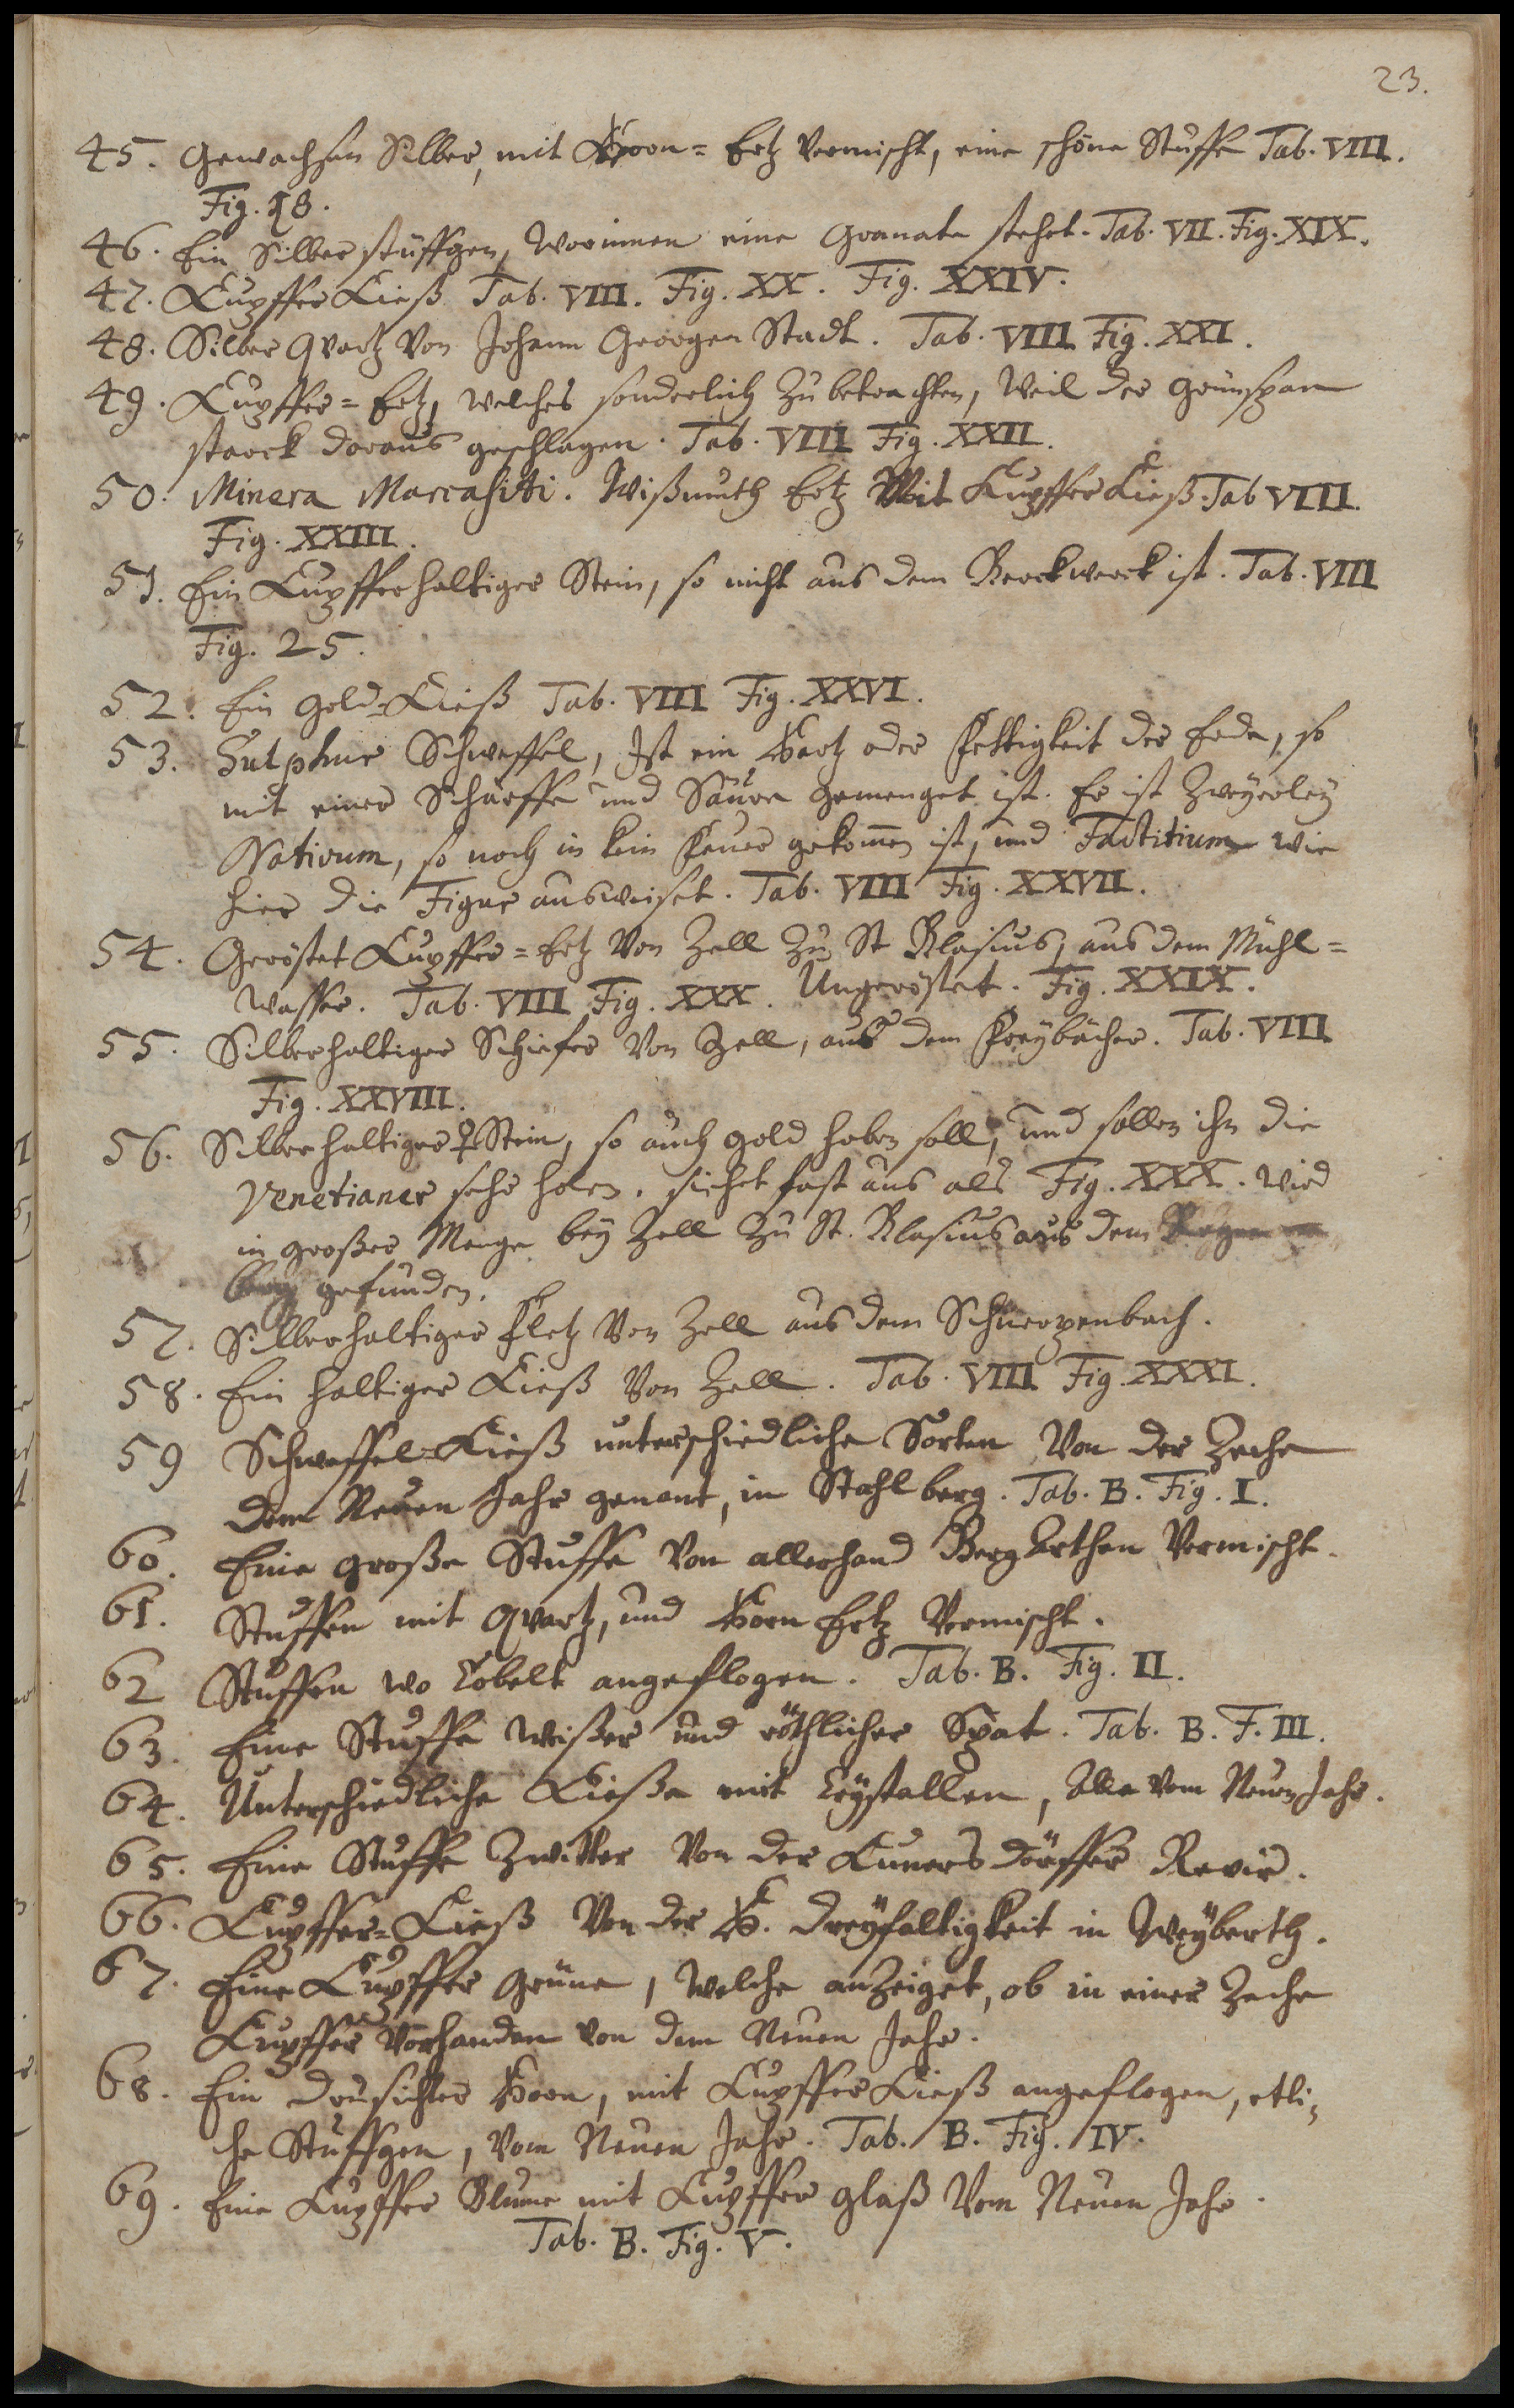 23.
45. Gewachsen Silber, mit Horn= Ertz vermischt, eine schöne Stuffe Tab. VIII.
Fig. 18.
46. Ein Silber stüffgen, worinnen eine Granate stehet. Tab. VII. Fig. XIX.
47. Kupffer Kieß Tab. VIII. Fig. XX. Fig. XXIV.
48. Silber Qvartz von Johann Georgen Stadt. Tab. VIII Fig. XXI.
49. Kupffer= Ertz, welches sonderlich zu betrachten, weil der Grünspan
starck daraus geschlagen. Tab. VIII Fig. XXII.
50. Minera Marcasitti. Wißmuth Ertz Mit Kupffer Kieß. Tab VIII.
Fig. XXIII.
51. Ein Kupfferhaltiger Stein, so nicht aus dem Berckwerck ist. Tab. VIII
Fig. 25.
52. Ein Gold=Kieß Tab. VIII Fig. XXVI.
53. Sulphur Schweffel, Ist ein Hartz oder Fettigkeit der Erde, so
mit einer Schärffe und Säure gemenget ist. Er ist zweyerley
Nativum, so noch in kein Feuer gekom̅en ist, und Factitium wie
hier die Figur ausweiset. Tab. VIII Fig. XXVII.
54. Geröstet Kupffer= Ertz von Zell zu St Blasius, aus dem Mühl=
wasser. Tab. VIII Fig. XXX. Ungeröstet. Fig. XXIX.
55. Silberhaltiger Schiefer von Zell, aus dem Freybächer. Tab. VIII
Fig. XXVIII.
56. Silberhaltiger ♀ Stein, so auch Gold haben soll, und sollen ihn die
Venetianer sehr holen. siehet fast aus als Fig. XXX. wird
in großer Menge bey Zell zu St. Blasius aus dem
berg gefunden.
57. Silberhaltiger Fletz von Zell aus dem Schnerpenbach.
58. Ein haltiger Kieß von Zell. Tab. VIII Fig. XXXI.
59 Schweffel=Kieß unterschiedliche Sorten von der Zeche
dem Neuen Jahr genant, in Stahlberg. Tab. B. Fig. I.
60. Eine große Stuffe von allerhand Berg Arthen vermischt.
61. Stuffen mit Qvartz, und Horn Ertz vermischt.
62 Stuffen wo Cobelt angeflogen. Tab. B. Fig. II.
63. Eine Stuffe weißer und röthlicher Spat. Tab. B. F. III.
64. Unterschiedliche Kieße mit Crystallen, Alle vom Neuen Jahr.
65. Eine Stuffe Zwitter von der Cunersdörffer Revir.
66. Kupffer=Kieß von der H. Dreyfaltigkeit in Weyberth.
67. Eine Kupffer Grüne, welche anzeiget, ob in einer Zeche
Kupffer vorhanden von dem Neuen Jahr.
68. Ein drusichter Horn, mit Kupffer Kieß angeflogen, etli=
che Stuffgen, vom Neuen Jahr. Tab. B. Fig. IV.
69. Eine Kupffer Blume mit Kupffer glaß vom Neuen Jahr.
Tab. B. Fig. V.